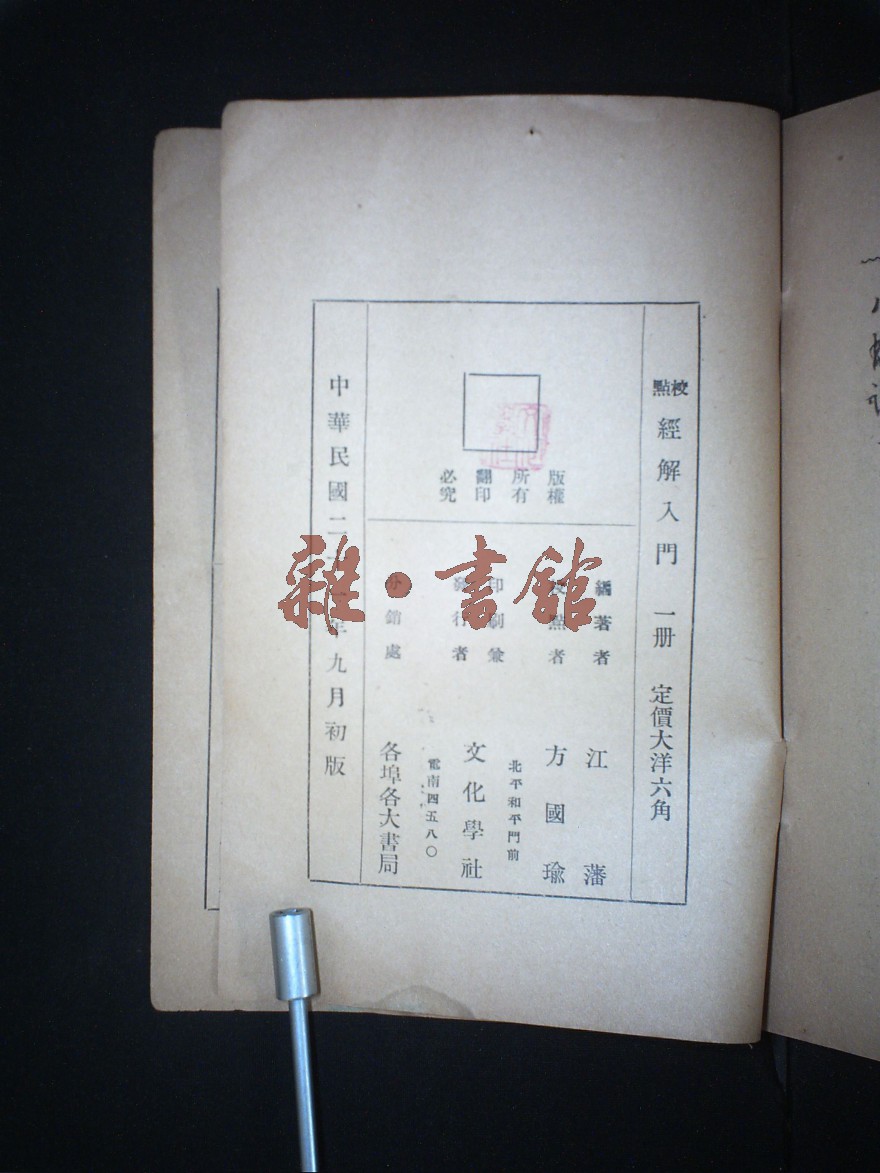 校點 經解入門 一册 定價大洋六角
版權
所有
翻印
必究
編著者 江藩
校點者 方國瑜
印刷兼
發行者
北平和平門前
文化學社
電南四五八〇
分銷處 各埠各大書局
中華民國二十 年九月初版
雜·書館